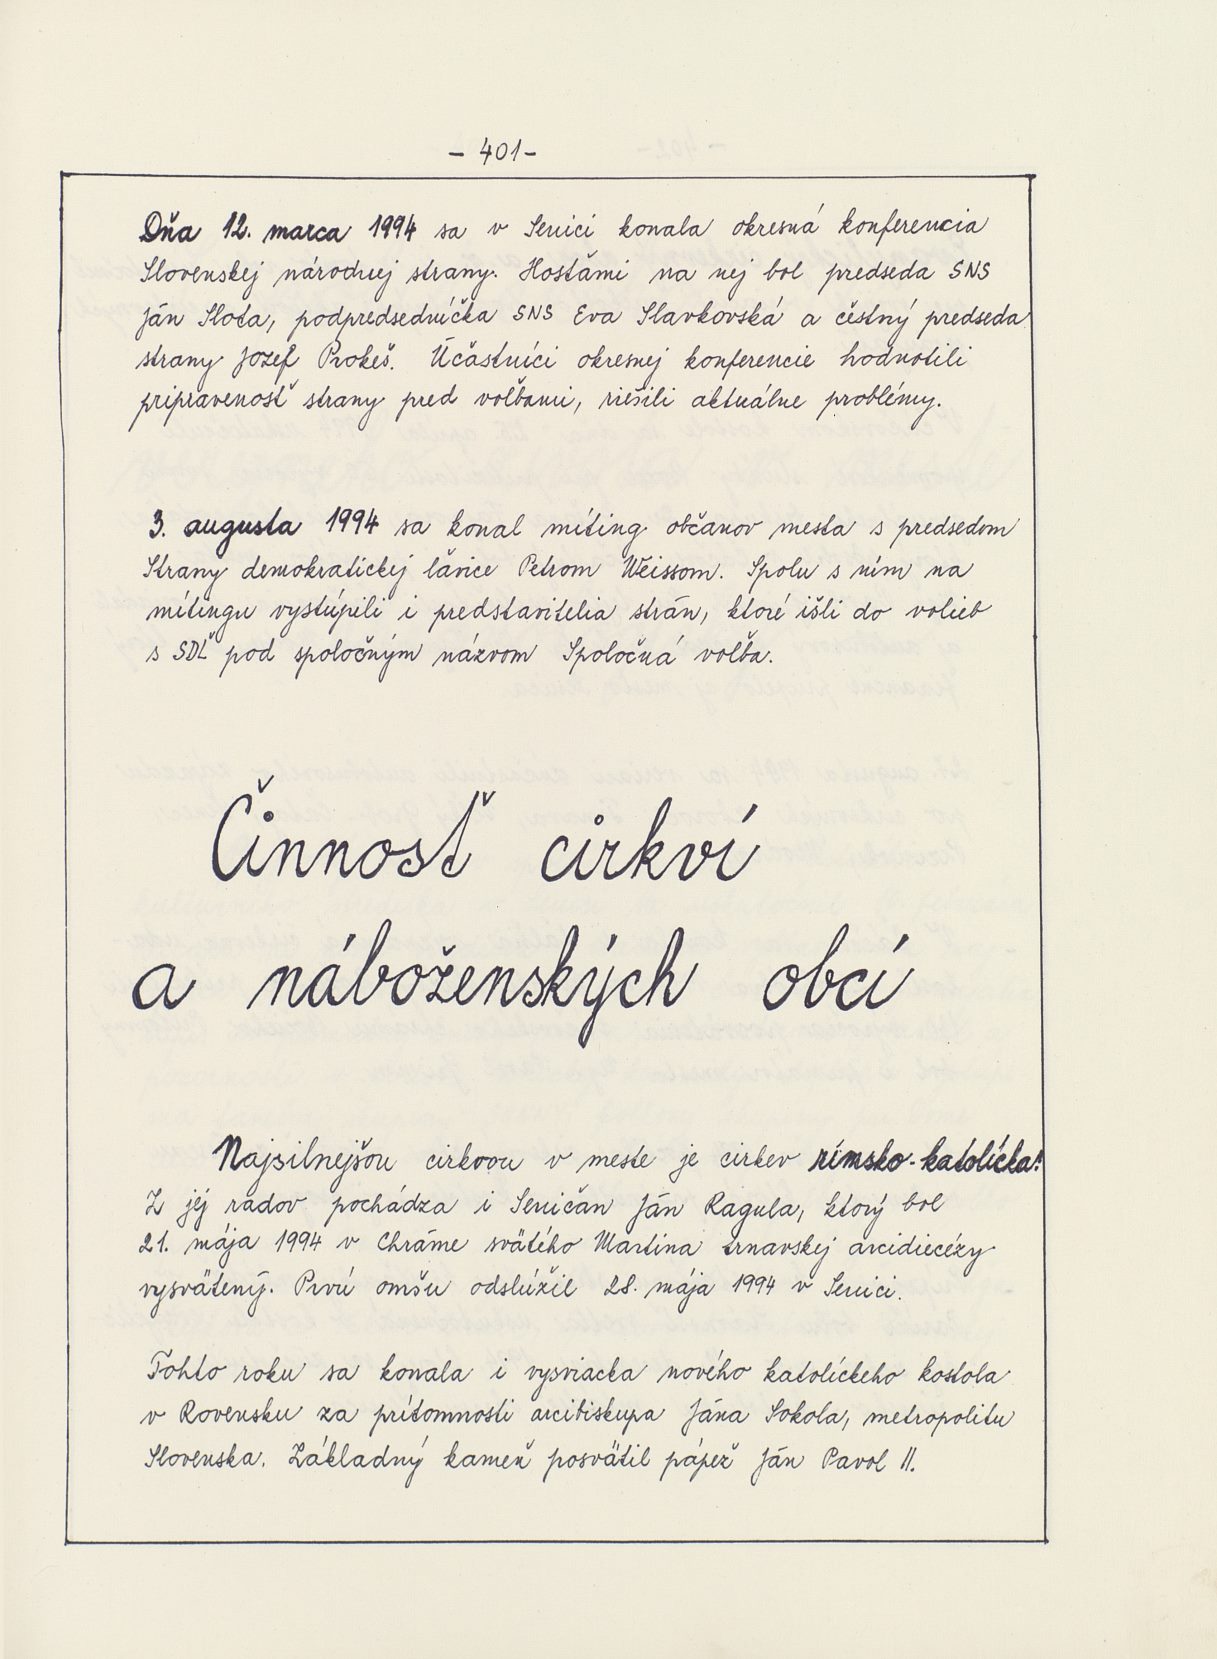 - 401 -
Dňa 12. marca 1994 sa v Senici konala okresná konferencia
Slovenskej národnej strany. Hosťami na nej bol predseda SNS
Ján Slota, podpredsedníčka SNS Eva Slavkovská a čestný predseda
strany Jozef Prokeš. Účastníci okresnej konferencie hodnotili
pripravenosť strany pred voľbami, riešili aktuálne problémy.
3. augusta 1994 sa konal míting občanov mesta s predsedom
Strany demokratickej ľavice Petrom Weissom. Spolu s ním na
mítingu vystúpili i predstavitelia strán, ktoré išli do volieb
s SDĽ pod spoločným názvom Spoločná voľba.
Činnosť cirkví
a náboženských obcí
Najsilnejšou cirkvou v meste je cirkev rímsko-katolícka.
Z jej radov pochádza i Seničan Ján Ragula, ktorý bol
21. mája 1994 v Chráme svätého Martina trnavskej arcidiecézy
vysvätený. Prvú omšu odslúžil 28. mája 1994 v Senici.
Tohto roku sa konala i vysviacka nového katolíckeho kostola
v Rovensku za prítomnosti arcibiskupa Jána Sokola, metropolitu
Slovenska. Základný kameň posvätil pápež Ján Pavol II.